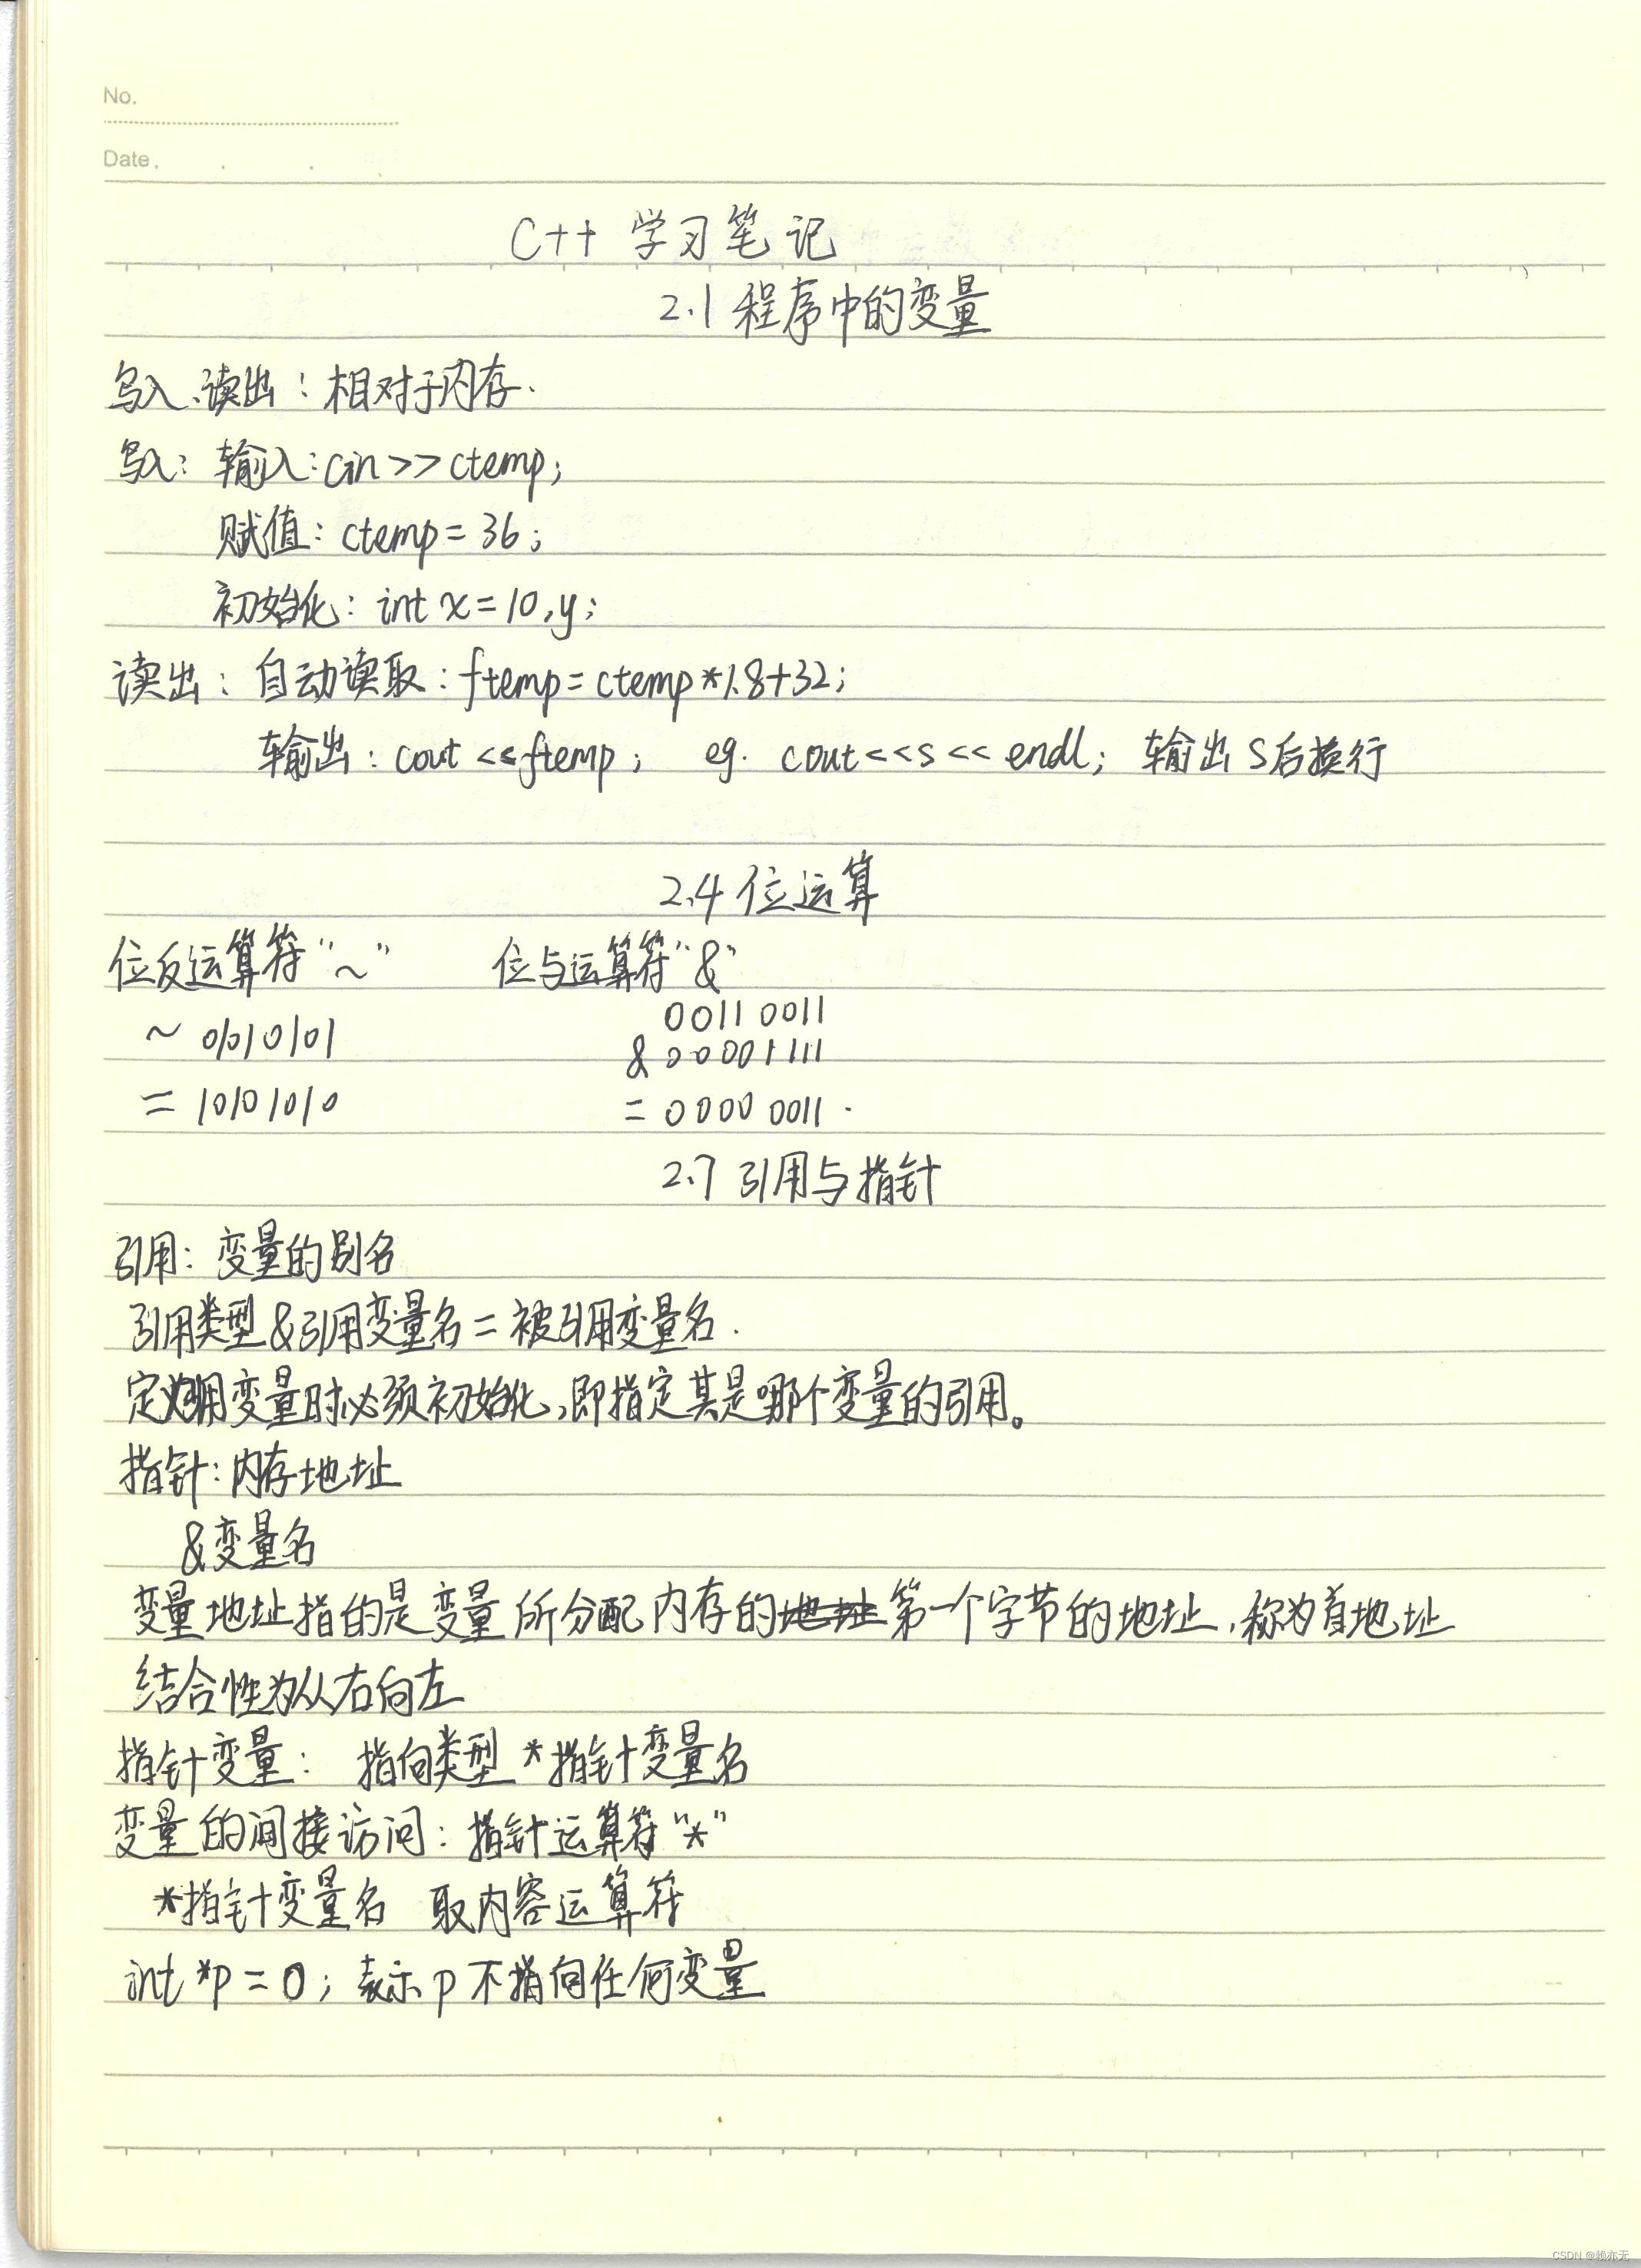 No.
Date.
C++ 学习笔记
2.1 程序中的变量
写入、读出：相对于内存.
写入：输入：cin>>ctemp;
赋值：ctemp=36;
初始化：int x=10,y;
读出：自动读取：ftemp=ctemp*1.8+32;
输出：cout<<ftemp; eg. cout<<s<<endl; 输出S后换行
2.4 位运算
位反运算符“~” 位与运算符“&”
0011 0011
~ 01010101
& 00001111
= 10101010
= 0000 0011.
2.7 引用与指针
引用：变量的别名
引用类型&引用变量名=被引用变量名.
定义引用变量时必须初始化,即指定其是哪个变量的引用。
指针：内存地址
&变量名
变量地址指的是变量所分配内存的第一个字节的地址,称为首地址
结合性为从右向左
指针变量： 指向类型 *指针变量名
变量的间接访问：指针运算符“*”
*指针变量名 取内容运算符
int *p=0; 表示p不指向任何变量
CSDN @赖亦无